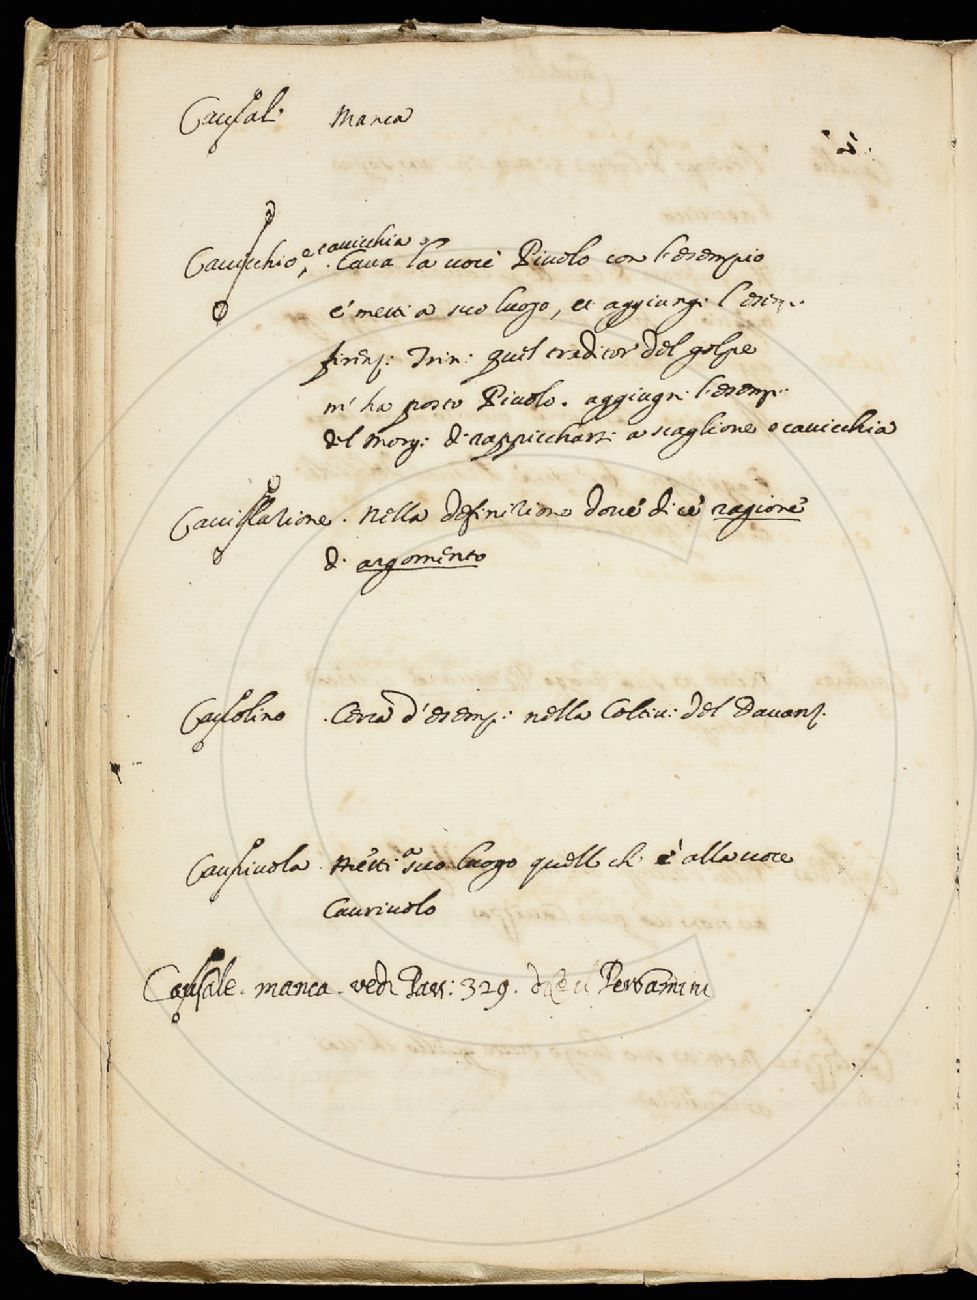 Causali Manca
Cauicchio, e cauicchia. Caua la uoce Piuolo con l'esempio
e' metti a suo luogo, et aggiungi l'esem.
firenz: Trin: quel traditor del golpe
m' ha posto Piuolo. aggiugni l'esemp:
del Morg: di rappiccharsi a scaglione o cauicchia
Cauillazione. Nella definizione doue dice ragione
di argomento
Cauolino. Cerca d'esemp: nella Coltiu: del Dauanz.
Cauriuola. Metti a suo luogo quello ch' è alla uoce
Cauriuolo
Causale. manca. vedi Pass: 329. dice il Pergamini